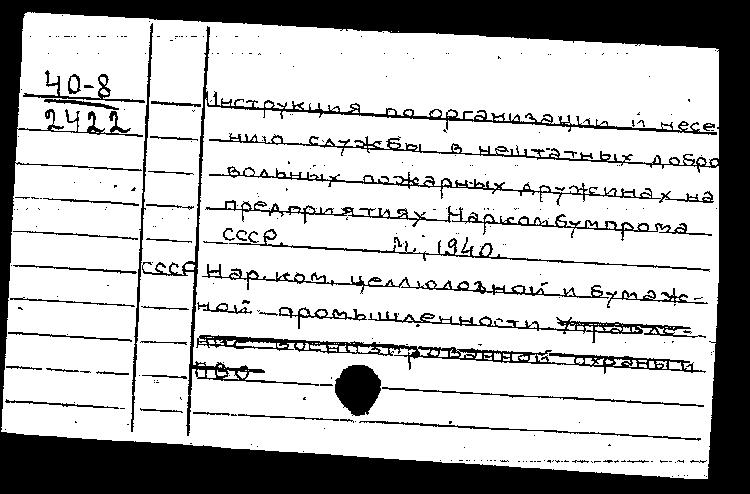 40-8
2422
Инструкция по организации и несе-
нию службы в нештатных добро
вольных пожарных дружинах на
предприятиях Наркомбумпрома
СССР. М., 1940.
СССР Нар. ком. целлюлозной и бумаж-
ной промышленности Управле-
ние военизированной охраны и
ПВО